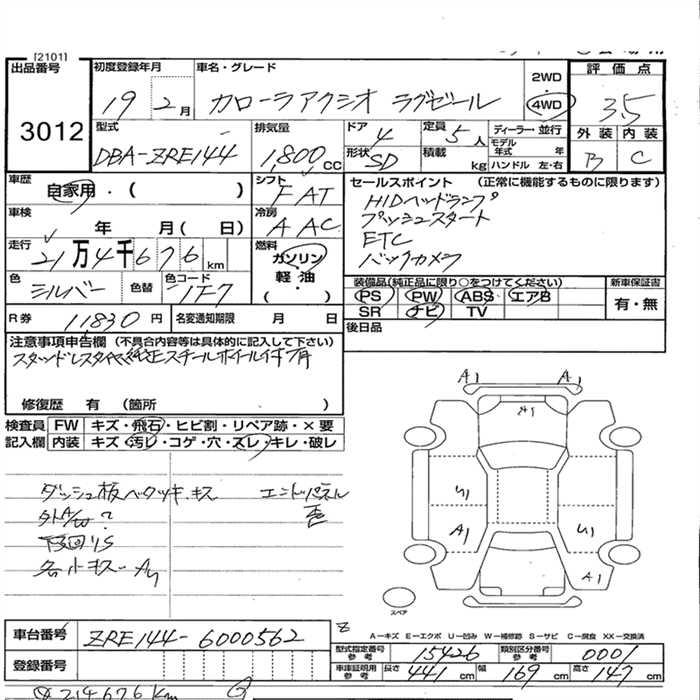 [2101]
出品番号 3012
初度登録年月 19 2月
車名・グレード カローラアクシオ ラグゼール
2WD
4WD
評価点 3.5
外装 B 内装 C
型式 DBA-ZRE144
排気量 1,800 CC
ドア 4
定員 5人
形状 SD
積載 kg
ディーラー・並行
モデル年式 年
ハンドル 左・右
車歴 自家用・( )
シフト FAT
車検 年 月( 日)
冷房 A AC
走行 21万4千676 km
燃料 ガソリン
軽・油
・( )
色 シルバー 色替 色コード 1F7
R券 11830 円
名変通知期限 月 日
セールスポイント (正常に機能するものに限ります)
HIDヘッドランプ
プッシュスタート
ETC
バックカメラ
装備品(純正品に限り○をつけてください)
PS PW ABS エアB
SR ナビ TV
新車保証書
有・無
後日品
注意事項申告欄 (不具合内容等は具体的に記入して下さい)
スタッドレスタイヤ純正スチールホイール付
修復歴 有 (箇所 )
検査員記入欄
FW キズ・飛石・ヒビ割・リペア跡・×要
内装 キズ・汚レ・コゲ・穴・スレ・キレ・破レ
ダッシュ板ベタツキ.キズ エンドパネル
外A/W?
各小キズ-A1
A1 A1
A1
U1
A1
U1
A1
スペア
A-キズ E-エクボ U-凹み W-補修跡 S-サビ C-腐食 XX-交換済
車台番号 ZRE144-6000562
登録番号
型式指定番号参考 15426
類別区分番号参考 0001
車庫証明用参考 長さ 441 cm 幅 169 cm 高さ 147 cm
214676km